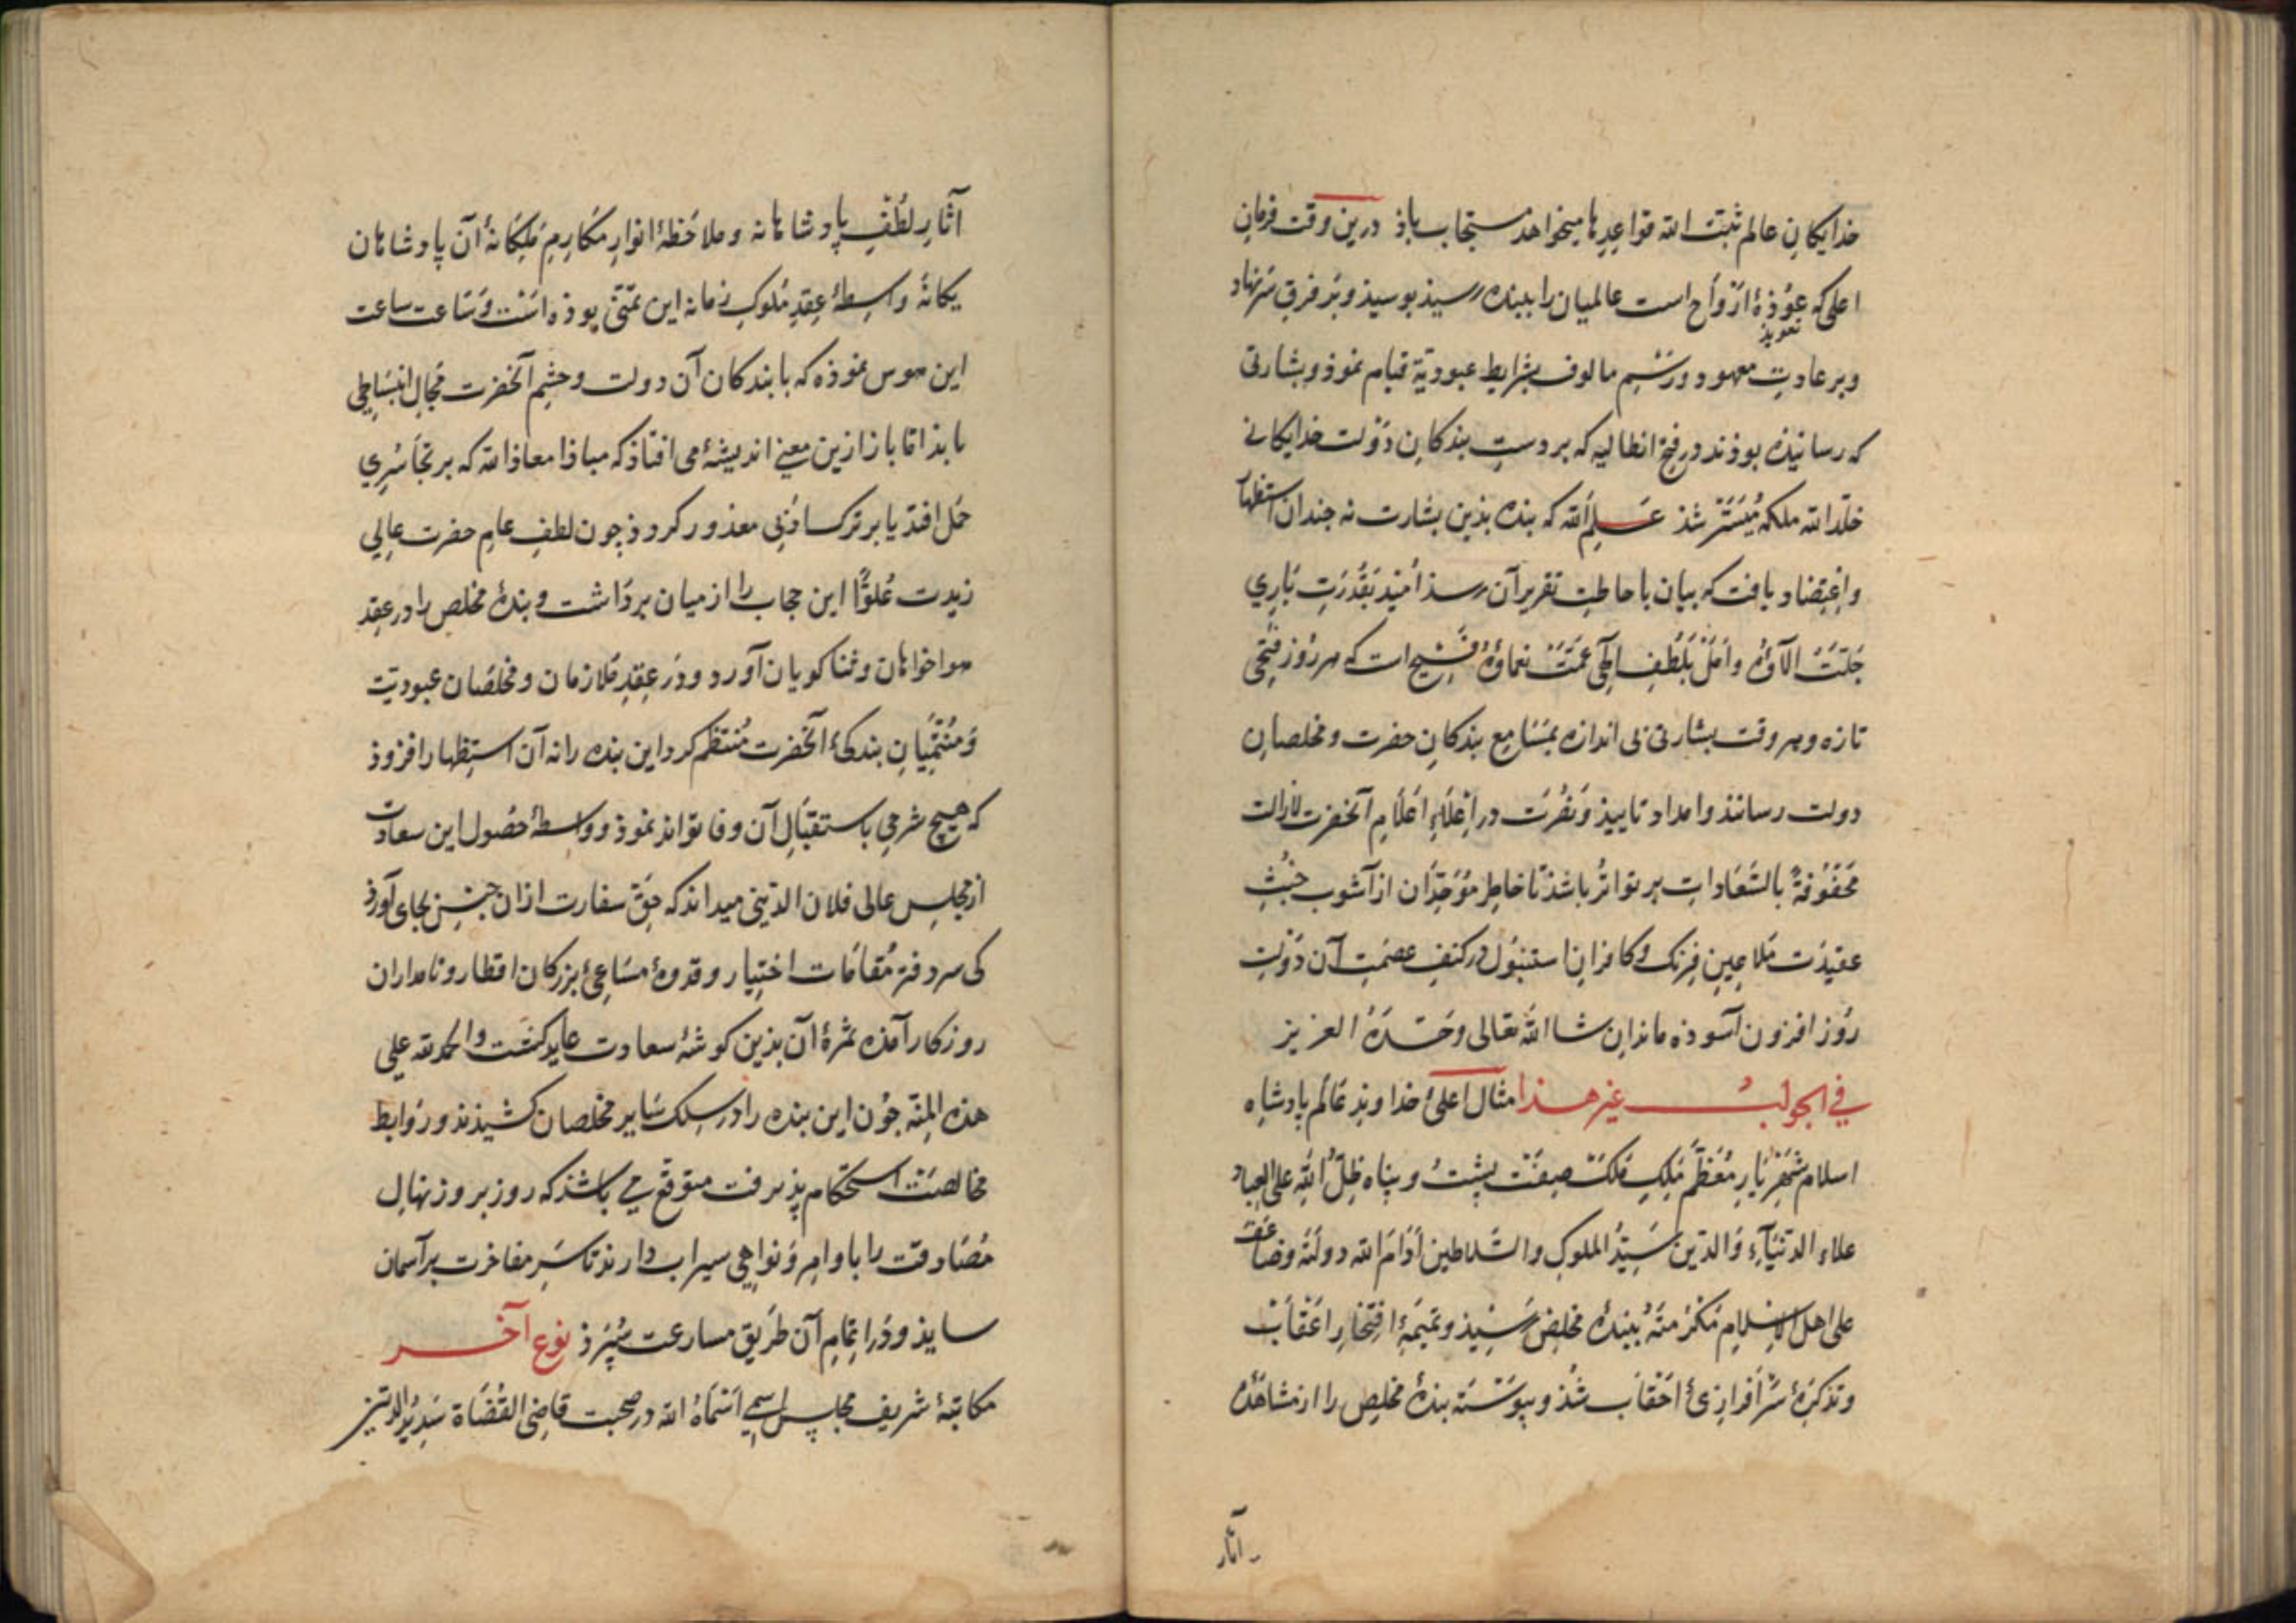 خدایکانِ عالم ثبّت الله قواعدها میخواهد مستجاب باذ درین وقت فرمان
اعلی که عُوْذهٔ ارْواح است عالمیان را ببنده رسیذ بوسیذ و بر فرقِ سَر نهاد
تعویذ
و بر عادتِ معهود و رسْمِ مالوف بشرایط عبودیّة قیام نموذ و بشارتی
که رسانیذه بوذند در فتح انطالیه که بر دستِ بندکانِ دَوْلت خدایکانی
خلّد الله ملکه مُیَسّر شذ عَلِمَ الله که بنده بذین بشارت نه چندان استظهار
و اعتضاد یافت که بیان باحاطتِ تقریر آن رسذ اُمّید بقُدرَتِ بَاری
جَلّتْ آلآؤه و اَمَلْ بلُطْفِ الٓهی عَمّتْ نعماؤهُ فَسِیح است که هر رُوز فتحی
تازه و هر وقت بشارتی بی اندازه بمَسَامِع بندکانِ حضرت و مخلصانِ
دولت رسانذ و امداد تاییذ وَ نصْرت در اِعْلاءِ اَعْلَامِ آنحضرت لازالت
مَحْفُوفةً بالسّعَاداتِ بر تواتر باشذ تا خاطِر مُوَحِّدان از آشوب خُبْثِ
عقیدَت مَلاعِینِ فِرنک و کافرانِ استنبُول در کنفِ عصمَتِ آن دَوْلتِ
رُوز افزون آسوذه ماند ان شا الله تعالی وحْدَهُ العزیز
في الجواب غیر هذا مثال اعلیٰ خداوندِ عَالَم پادشاهِ
اسلام شَهْریَارِ مُعَظّم مَلِکِ مَلَک صِفَتْ پُشتُ و پناه ظِلُّ الله علی العباد
علاء الدُّنیَآءِ وَ الدّین سَیّدُ الملوکِ والسَّلاطین اَدَامَ الله دولتَهُ وضَاعَفَ
علی اهل الاِسْلامِ مَکرُمتَهُ ببندهٔ مخلِصْ رَسِیْذ و تمیمَهٔ افتخارِ اعْقَابْ
و تذکرهٔ سَرْاَفرازیٔ اَحْقاب شُذ و پیوَسْتَه بندهٔ مخلِص را از مشاهَدهٔ
آثار
آثارِ لُطْفِ پادشاهانه و ملاحَظهٔ انوارِ مَکَارِمِ مَلِکَانهٔ آن پادشاهان
یکانهٔ واسِطهٔ عِقدِ مُلوکِ زمانه این تمنّی بوذه اسْت وَ سَاعت ساعت
این هوس نموذه که با بندکان آن دولت و حشمِ آنحضرت مَجالِ انبساطی
یابذ امّا باز ازین معنی اندیشهٔ می افتاذ که مباذا معاذ الله که بر تجاسُری
حَمل افتذ یا بر ترک ادبی معذور کردد چون لطفِ عامِ حضرت عالی
زیدت عُلوًّا این حجاب را از میان برداشت و بندهٔ مخلص را در عقد
هواخواهان و ثناکویان آورد و دَر عِقدِ مُلازمان و مخلصَان عبودیّت
وَ مُنْتَمیَانِ بندکیٔ آنحضرت مُنتظم کرد این بنده را نه آن استظهار افزوذ
که هیچ شرحی باستقبالِ آن وفا تواند نموذ و واسطهٔ حصُول این سعادت
از مجلِس عالی فلان الدّینی میداند که حَقِ سفارت از ان جنس بجای آورذ
کی سر دفترِ مُقامَات اختیار و قدوهٔ مسَاعیٔ بزرکان اقطار و نامداران
روزکار آمذه ثمرهٔ آن بذین کوشهٔ سعادت عاید کشت والحمدلله علی
هذه المِنّه چوْن این بنده را در سِلک سَایر مخلصان کشیذند و رَوابط
مخالصَت استحکام پذیرفت متوقّع می باشذ که روز بروز نهالِ
مُصَادقت را با وامر وَ نواهی سیراب دارند تا سَرِ مفاخرت بر آسمان
سایذ و دَر اتمامِ آن طریق مسارعت سُپُرذ نوع آخر
مکاتبهٔ شریف مجلس اسمی اسْمَاهُ الله در صحبت قاضی القُضَاة سَدیدُ الدّین